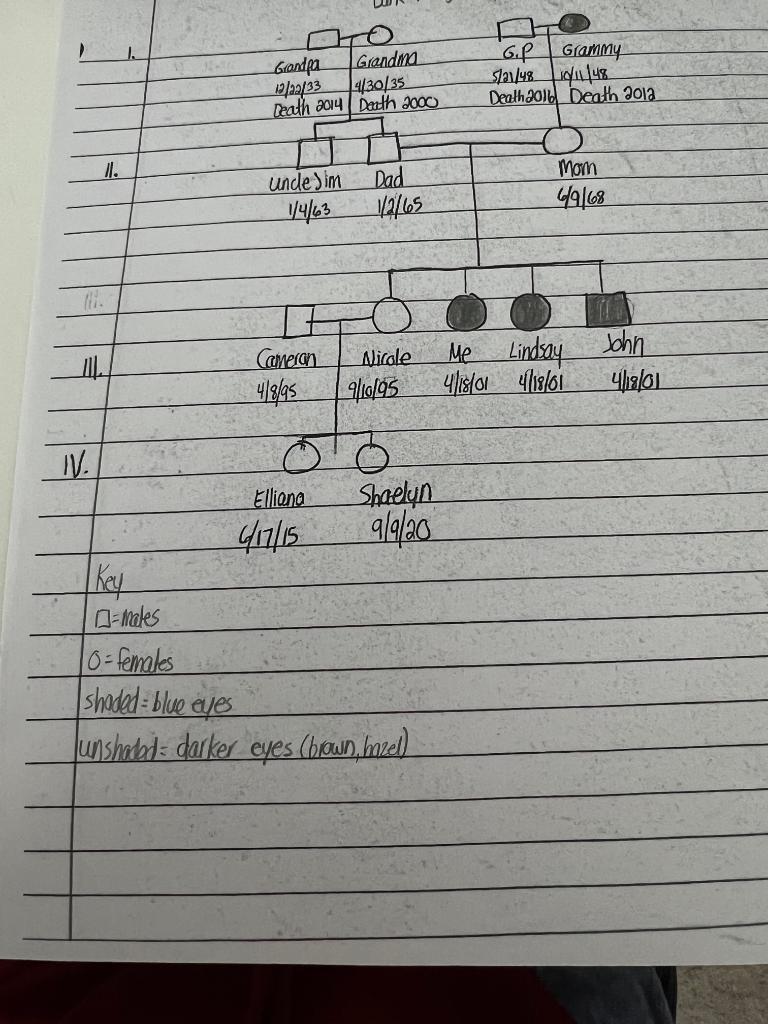 I.
Grandpa Grandma G.P Grammy
12/22/33 4/30/35 5/21/48 10/11/48
Death 2014 Death 2000 Death 2016 Death 2012
II.
Uncle Jim Dad Mom
1/4/63 1/2/65 6/9/68
III.
III. Cameron Nicole Me Lindsay John
4/8/95 9/10/95 4/18/01 4/18/01 4/18/01
IV.
Elliana Shaelyn
6/17/15 9/9/20
Key
□=males
O=females
shaded=blue eyes
unshaded= darker eyes (brown, hazel)